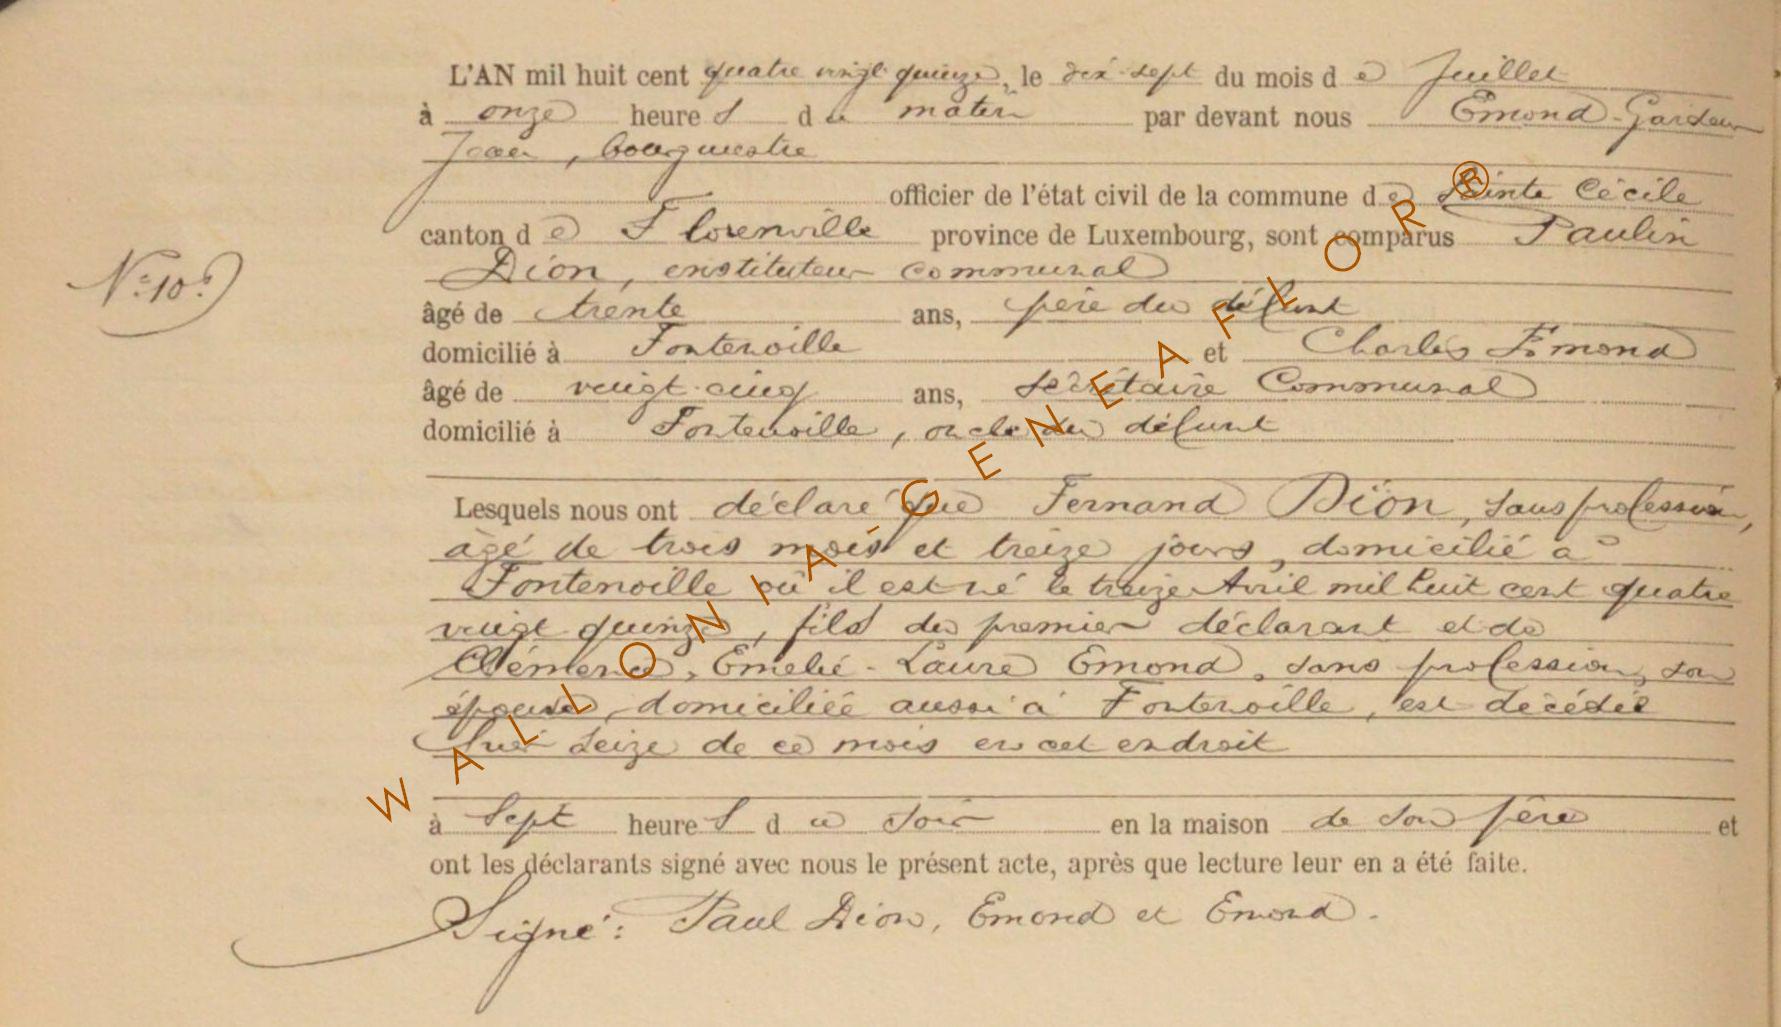 L'AN mil huit cent quatre vingt quinze, le dix-sept du mois de Juillet
à onze heures du matin par devant nous Emond-
Jean, bourgmestre
officier de l'état civil de la commune de Sainte Cécile
canton de Florenville province de Luxembourg, sont comparus Paulin
Dion, instituteur communal
N° 10
âgé de trente ans, père du défunt
domicilié à Fontenoille et Charles Emond
âgé de vingt-cinq ans, secrétaire Communal
domicilié à Fontenoille, oncle du défunt
Lesquels nous ont déclaré que Fernand Dion, sans profession,
âgé de trois mois et treize jours, domicilié à
Fontenoille où il est né le treize Avril mil huit cent quatre
vingt quinze, fils du premier déclarant et de
Clémence, Emélie-Laure Emond, sans profession, son
épouse, domiciliée aussi à Fontenoille, est décédé
hier seize de ce mois en cet endroit
à sept heures du soir en la maison de son père et
ont les déclarants signé avec nous le présent acte, après que lecture leur en a été faite.
Signé: Paul Dion, Emond et Emond.
WALLONIA-GENEAFLOR®